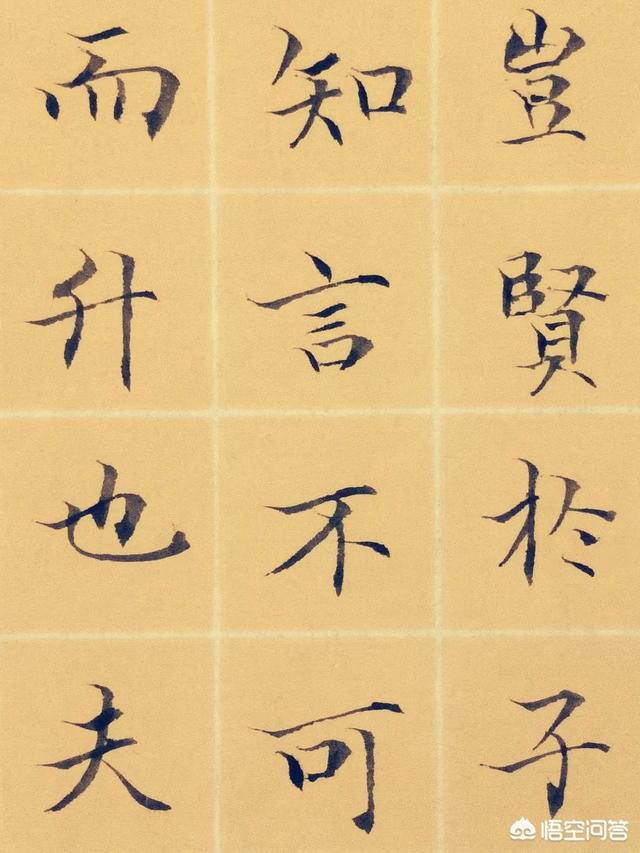 豈賢於子
知言不可
而升也夫
悟空问答